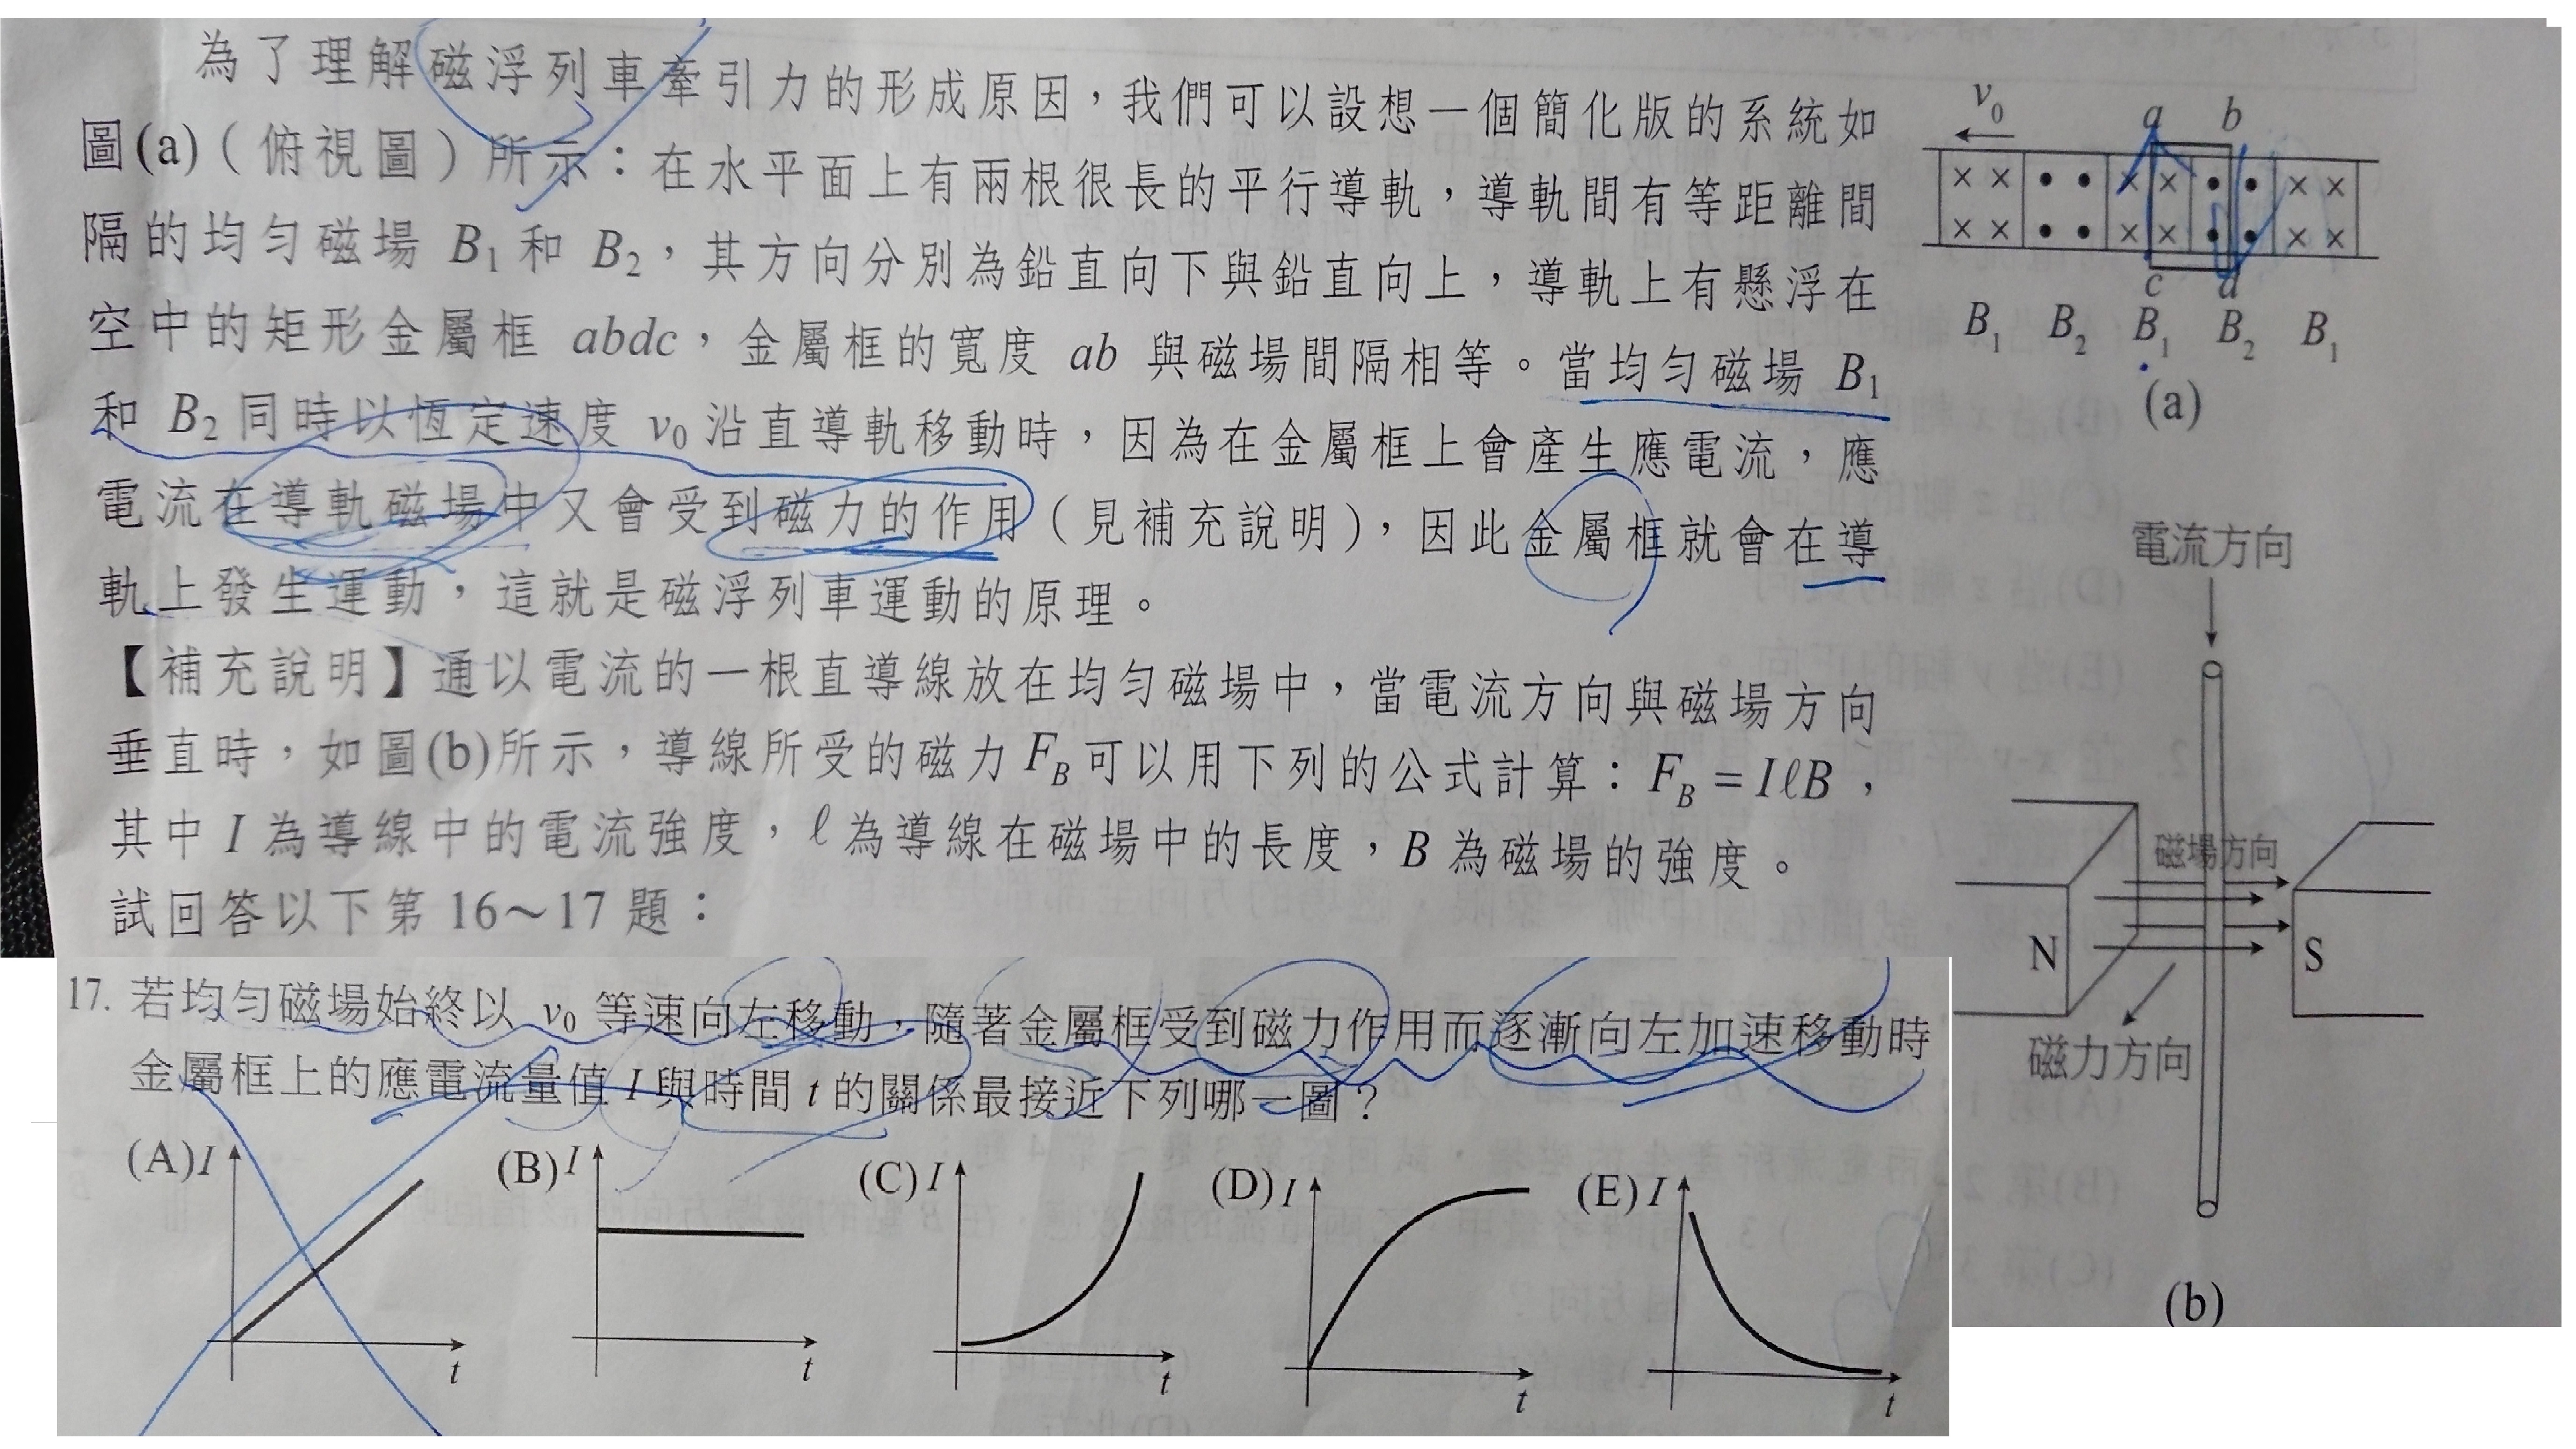 為了理解磁浮列車牽引力的形成原因，我們可以設想一個簡化版的系統如
圖(a)（俯視圖）所示：在水平面上有兩根很長的平行導軌，導軌間有等距離間
隔的均勻磁場 B₁ 和 B₂，其方向分別為鉛直向下與鉛直向上，導軌上有懸浮在
空中的矩形金屬框 abdc，金屬框的寬度 ab 與磁場間隔相等。當均勻磁場 B₁
和 B₂ 同時以恆定速度 v₀ 沿直導軌移動時，因為在金屬框上會產生應電流，應
電流在導軌磁場中又會受到磁力的作用（見補充說明），因此金屬框就會在導
軌上發生運動，這就是磁浮列車運動的原理。
【補充說明】通以電流的一根直導線放在均勻磁場中，當電流方向與磁場方向
垂直時，如圖(b)所示，導線所受的磁力 F_B 可以用下列的公式計算：F_B = IℓB，
其中 I 為導線中的電流強度，ℓ 為導線在磁場中的長度，B 為磁場的強度。
試回答以下第 16～17 題：
v₀
a b
× × • • × × • • × ×
× × • • × × • • × ×
c d
B₁ B₂ B₁ B₂ B₁
(a)
電流方向
磁場方向
N S
磁力方向
(b)
17. 若均勻磁場始終以 v₀ 等速向左移動，隨著金屬框受到磁力作用而逐漸向左加速移動時
金屬框上的應電流量值 I 與時間 t 的關係最接近下列哪一圖？
(A) I t
(B) I t
(C) I t
(D) I t
(E) I t